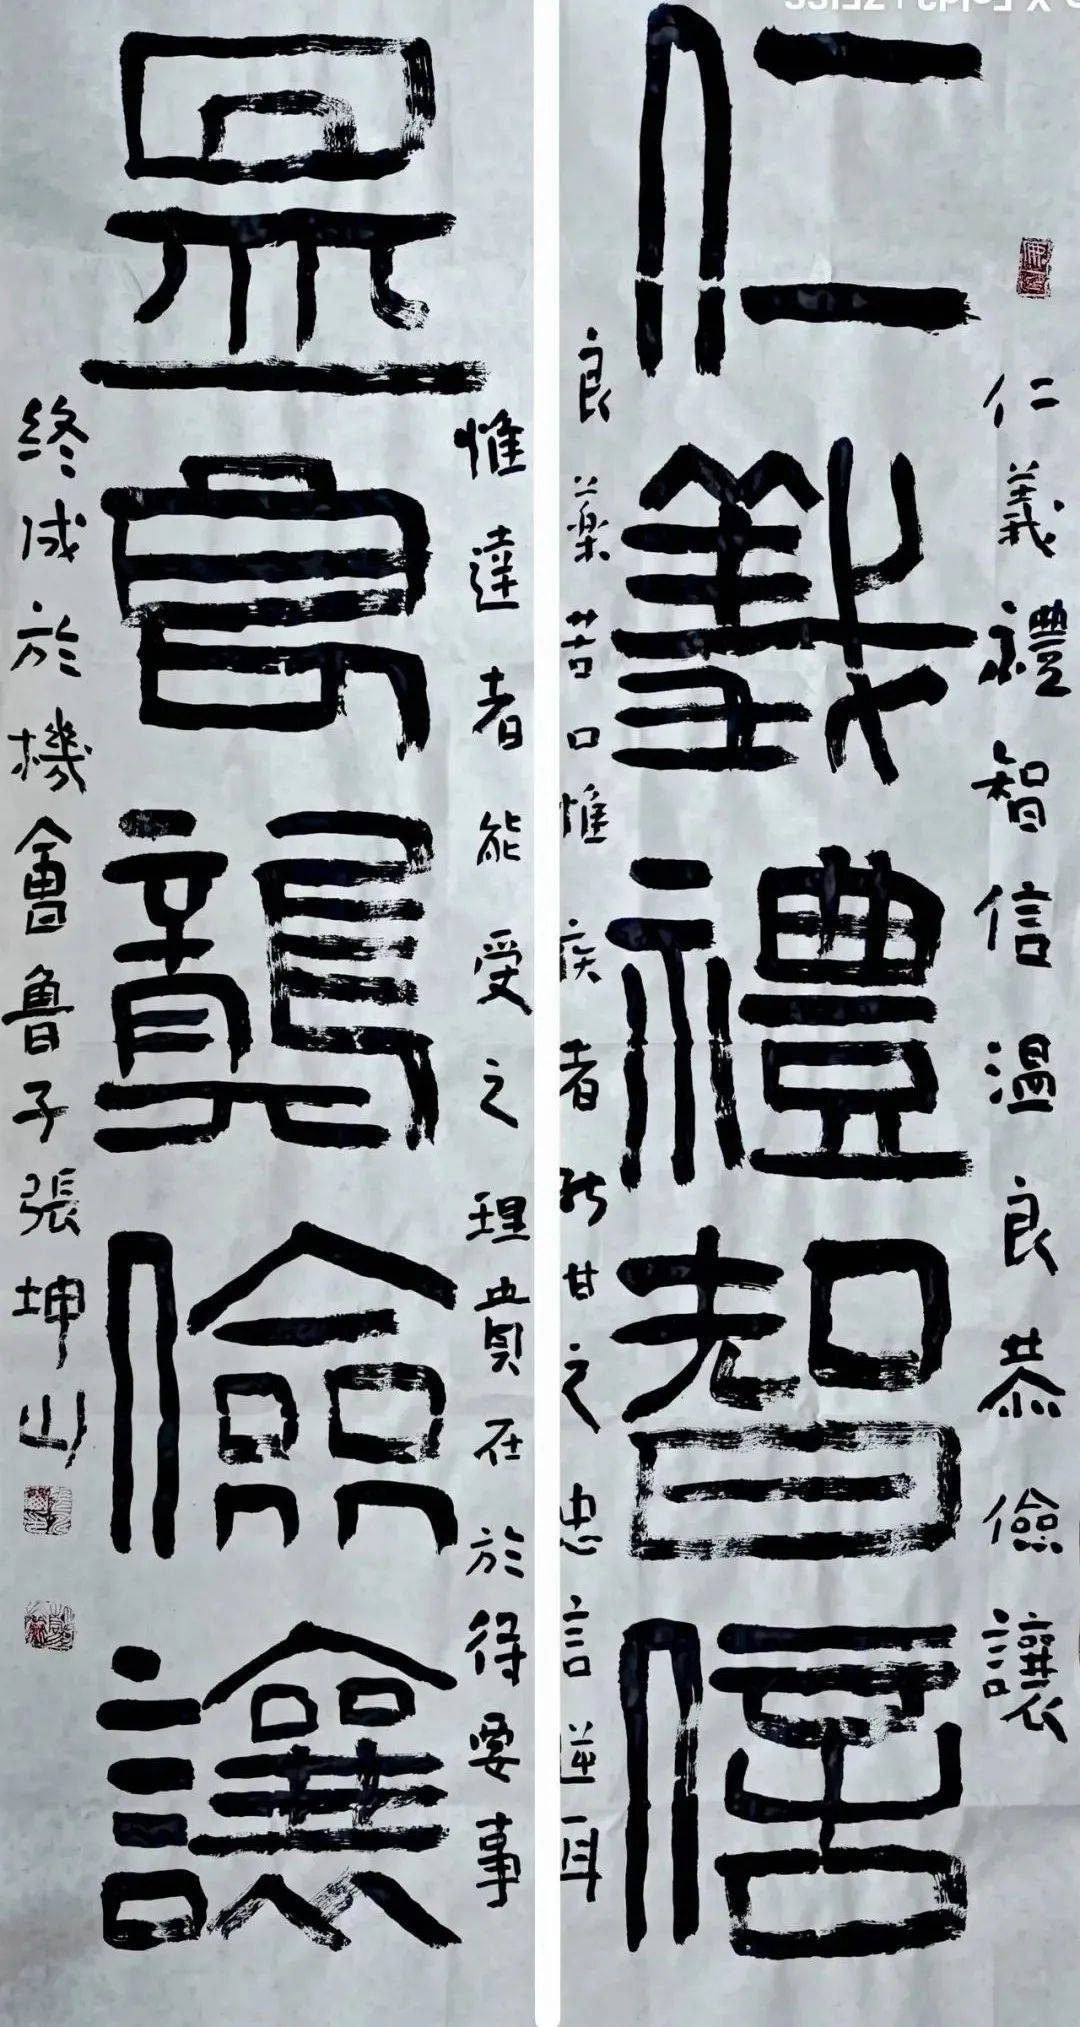 仁義禮智信溫良恭儉讓
仁義禮智信
良藥苦口惟疾者能甘之忠言逆耳
惟達者能受之理貴在於得要事
昷良龔儉讓
終成於機會魯子張坤山